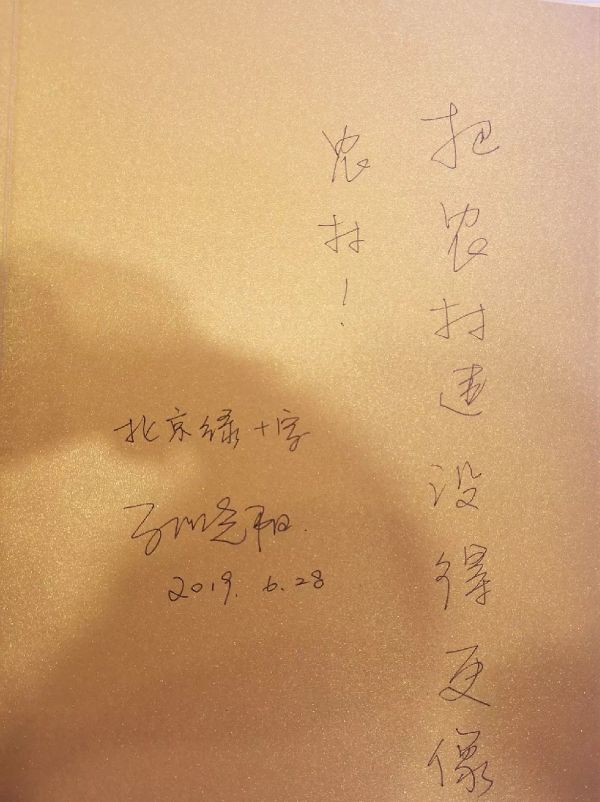 把农村建设得更像
农村！
北京绿十字
孙晓阳
2019.6.28